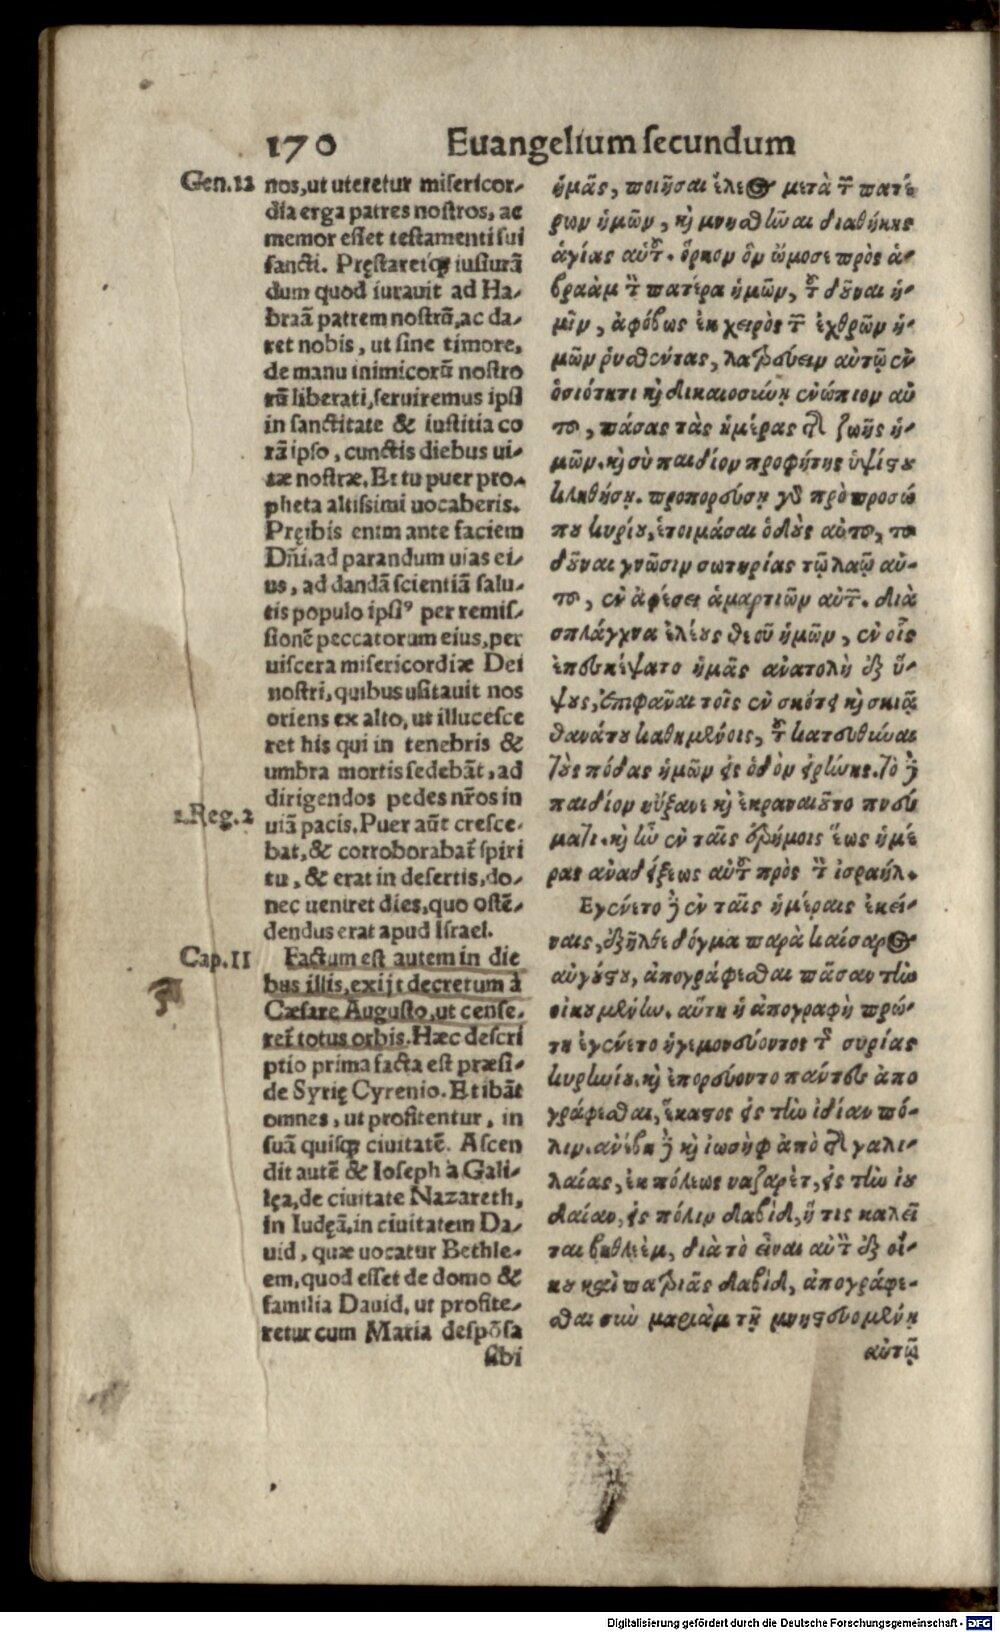 170 Euangelium secundum
Gen.12
nos, ut uteretur misericor-
dia erga patres nostros, ac
memor esset testamenti sui
sancti. Pręstaretq́ꝫ iusiurã
dum quod iurauit ad Ha-
braã patrem nostrũ, ac da-
ret nobis, ut sine timore,
de manu inimicorũ nostro
rũ liberati, seruiremus ipsi
in sanctitate & iustitia co
rã ipso, cunctis diebus ui-
tæ nostræ. Et tu puer pro-
pheta altissimi uocaberis.
Pręibis enim ante faciem
Dñi. ad parandum uias ei-
us, ad dandã scientiã salu-
tis populo ipsiꝰ per remis-
sionẽ peccatorum eius, per
uiscera misericordiæ Dei
nostri, quibus uisitauit nos
oriens ex alto, ut illucesce
ret his qui in tenebris &
umbra mortis sedebãt, ad
dirigendos pedes nr̃os in
1.Reg.2
uiã pacis. Puer aũt cresce-
bat, & corroborabat̃ spiri
tu, & erat in desertis, do-
nec ueniret dies, quo ostẽ-
dendus erat apud Israel.
Cap.II
Factum est autem in die
bus illis, exijt decretum à
Cæsare Augusto, ut cense-
ret̃ totus orbis. Hæc descri
ptio prima facta est præsi-
de Syrię Cyrenio. Et ibãt
omnes, ut profitentur, in
suã quisqꝫ ciuitatẽ. Ascen
dit autẽ & Ioseph à Gali-
lęa, de ciuitate Nazareth,
in Iudęã, in ciuitatem Da-
uid, quæ uocatur Bethle-
em, quod esset de domo &
familia Dauid, ut profite-
retur cum Maria despõsa
sibi
ἡμᾶς, ποιῆσαι ἔλεος μετὰ τῶν πατέ-
ρων ἡμῶν, καὶ μνησθῆναι διαθήκης
ἁγίας αὐτοῦ. ὅρκον ὃν ὤμοσε πρὸς ἀ-
βραὰμ τὸν πατέρα ἡμῶν, τοῦ δοῦναι ἡ-
μῖν, ἀφόβως ἐκ χειρὸς τῶν ἐχθρῶν ἡ-
μῶν ῥυσθέντας, λατρεύειν αὐτῷ ἐν
ὁσιότητι καὶ δικαιοσύνῃ ἐνώπιον αὐ
τοῦ, πάσας τὰς ἡμέρας τῆς ζωῆς ἡ-
μῶν. καὶ σὺ παιδίον προφήτης ὑψίστου
κληθήσῃ. προπορεύσῃ γὰρ πρὸ προσώ
που κυρίου, ἑτοιμάσαι ὁδοὺς αὐτοῦ, τοῦ
δοῦναι γνῶσιν σωτηρίας τῷ λαῷ αὐ-
τοῦ, ἐν ἀφέσει ἁμαρτιῶν αὐτῶν. διὰ
σπλάγχνα ἐλέους θεοῦ ἡμῶν, ἐν οἷς
ἐπεσκέψατο ἡμᾶς ἀνατολὴ ἐξ ὕ-
ψους, ἐπιφᾶναι τοῖς ἐν σκότει καὶ σκιᾷ
θανάτου καθημένοις, τοῦ κατευθῦναι
τοὺς πόδας ἡμῶν εἰς ὁδὸν εἰρήνης. τὸ δὲ
παιδίον ηὔξανε καὶ ἐκραταιοῦτο πνεύ
ματι. καὶ ἦν ἐν ταῖς ἐρήμοις ἕως ἡμέ
ρας ἀναδείξεως αὐτοῦ πρὸς τὸν ἰσραήλ.
Εγένετο δὲ ἐν ταῖς ἡμέραις ἐκεί-
ναις, ἐξῆλθε δόγμα παρὰ καίσαρος
αὐγούστου, ἀπογράφεσθαι πᾶσαν τὴν
οἰκουμένην. αὕτη ἡ ἀπογραφὴ πρώ-
τη ἐγένετο ἡγεμονεύοντος τῆς συρίας
κυρηνίου. καὶ ἐπορεύοντο πάντες ἀπο
γράφεσθαι, ἕκαστος εἰς τὴν ἰδίαν πό-
λιν. ἀνέβη δὲ καὶ ἰωσὴφ ἀπὸ τῆς γαλι-
λαίας, ἐκ πόλεως ναζαρὲτ, εἰς τὴν ἰου
δαίαν, εἰς πόλιν δαβὶδ, ἥ τις καλεῖ
ται βηθλεὲμ, διὰ τὸ εἶναι αὐτὸν ἐξ οἴ-
κου καὶ πατριᾶς δαβὶδ, ἀπογράφε-
σθαι σὺν μαριὰμ τῇ μνηστευομένῃ
αὐτῷ
Digitalisierung gefördert durch die Deutsche Forschungsgemeinschaft - DFG